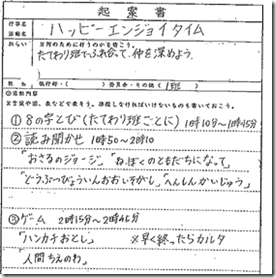 起案書
行事名
活動名
ハッピーエンジョイタイム
ねらい
※何のために行うのかを書こう。
たてわり班でふれ合って、仲を深めよう。
1班
◎活動内容
①8の字とび(たてわり班ごとに) 1時10分~1時45分
②読み聞かせ 1時50~2時10
「おさるのジョージ」「ねぼくのともだちになって」
「どうぶつびょういんおおいそがし」「へんしんかいじゅう」
③ゲーム 2時15分~2時45分
「ハンカチおとし」 ※早く終ったらカルタ
「人間ちえのわ」